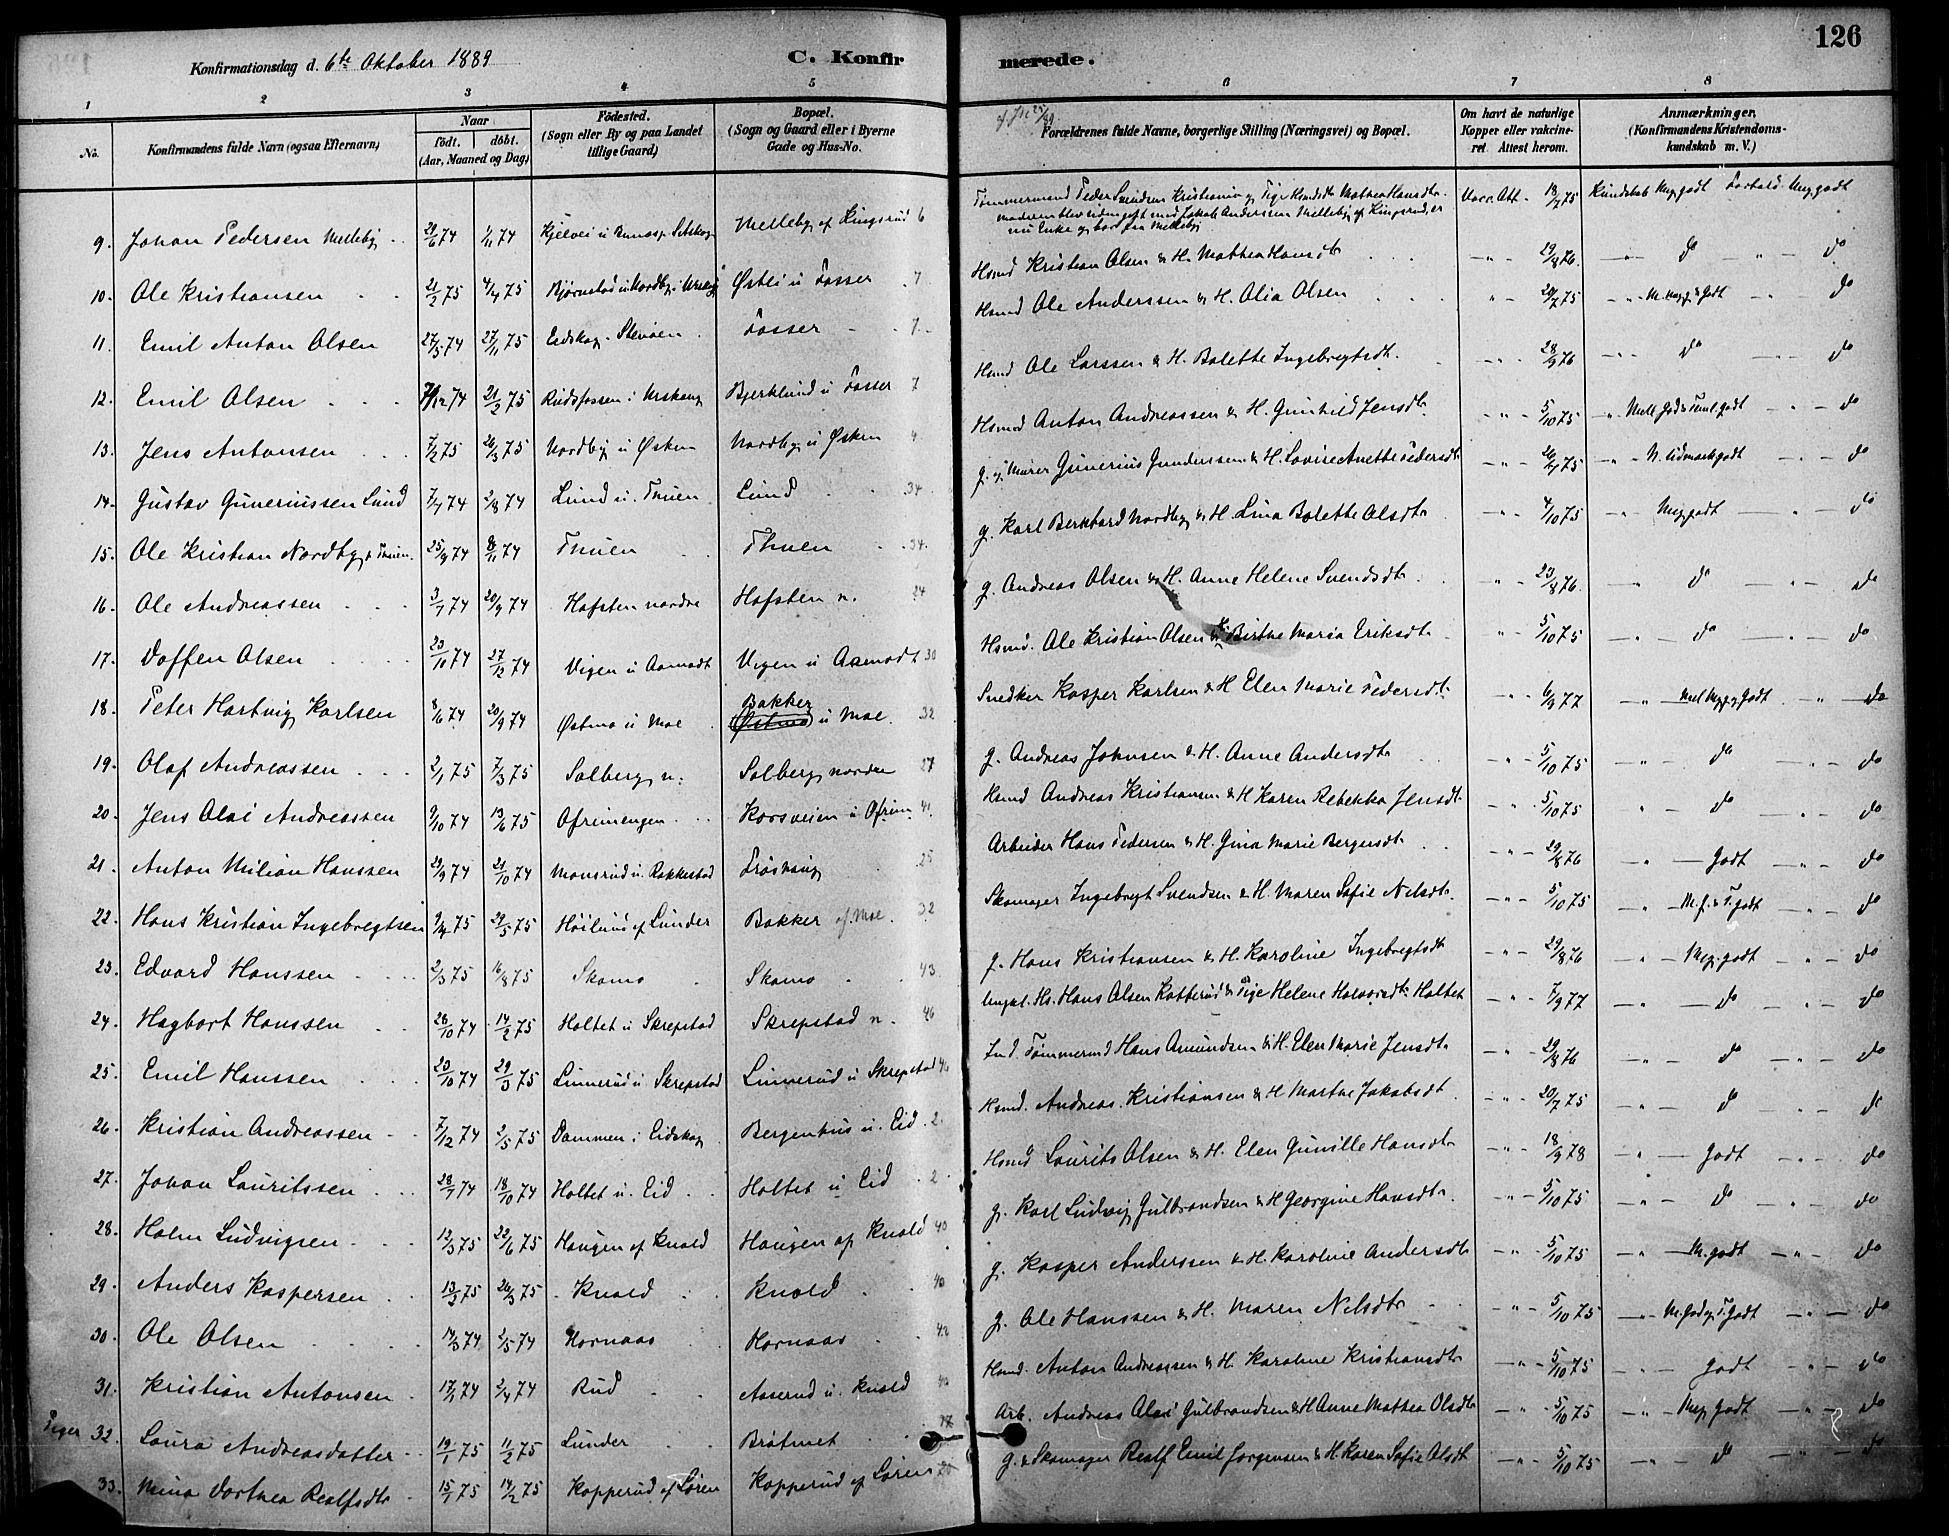 126
Konfirmationsdag d. 6te Oktober 1889
C. Konfirmerede.
1 2 3 4 5 6 7 8
No. Konfirmandens fulde Navn (ogsaa Efternavn) Naar født. døbt. (Aar, Maaned og Dag) Fødested. (Sogn eller By og paa Landet tillige Gaard) Bopæl. (Sogn og Gaard eller i Byerne Gade og Hus-No. Forældrenes fulde Navne, borgerlige Stilling (Næringsvei) og Bopæl. Om havt de naturlige Kopper eller vakcineret. Attest herom. Anmærkninger. (Konfirmandens Kristendomskundskab m. V.)
9. Johan Pedersen Melleby 74 74 Melleby af Kingsrud 6 Tømmermand Peder Svendsen Kristiania og Pige Mathea Hansdtr. moderen blev siden gift med Jakob Anderssen Melleby af Kingsrud, er nu Enke og bor paa Melleby Vacc. Att. 75 Kundskab Meg. godt Forhold Meg. godt
10. Ole Kristiansen 21/2 75 4/4 75 Bjørnstad u Nordby i Urskog Østli u Fosser 7 Hsmd Kristian Olsen & H. Mathea Hansdtr 29/8 76 do do
11. Emil Anton Olsen 27/5 74 27/11 75 Eidskog Fosser 7 Hsmd Ole Anderssen & H. Olia Olsen 20/7 75 M. Meg. & Godt do
12. Emil Olsen 12 74 21/2 75 Rudsfossen i Urskoug Bjerklund u Fosser 7 Hsmd Ole Larssen & H. Bolette Ingebregtsdt. 28/9 76 do do
13. Jens Antonsen 7/2 75 26/3 75 Nordby u Østen Nordby u Østen 4 Hsmd Anton Andreassen & H. Gunhild Jensdtr 5/10 75 do
14. Gustav Gunerius­sen Lund 7/7 74 2/8 74 Lund u. Thuen Lund 34 g. og Murer Gunerius Gunderssen & H. Lovise Anette Pedersdt. 75 N. Udmerk. godt do
15. Ole Kristian Nordby, Thuen 25/9 74 8/11 74 Thuen Thuen 34. g. Karl Berthard Nordby & H. Lina Bolette Olsdtr 4/10 75 Meg. godt do
16. Ole Andreassen 3/7 74 20/9 74 Hafsten nordre Hafsten n. 24 g. Andreas Olsen & H. Anne Helene Svendsdtr. 23/8 76. do do
17. Doffen Olsen 23/10 74 27/12 74 Vigen u Aamodt Vigen u Aamodt 30 Hsmd. Ole Kristian Olsen & H. Birthe Maria Eriksdtr. 5/10 75 do do
18. Peter Hartvig Karlsen 8/6 74 20/9 74 Østmo u Moe Bakker Østmo u Moe. 32 Snedker Kasper Karlsen & H Elen Marie Pedersdt. 6/9 77 Mel. Meg. og godt do
19. Olaf Andreassen 2/1 75 7/3 75 Solberg n. Solberg nordre 27 g. Andreas Johnsen & H. Anne Andersdtr 5/10 75 do do
20. Jens Olai Andreassen 9/10 74 13/6 75 Ofreimengen Korsveien u Ofreim 41. Hsmd Andreas Kristiansen & H Karen Rebekka Jensdt. 5/10 75 do do
21. Anton Milian Hanssen 29/9 74 21/10 74 Monsrud u. Rakkestad 25 Arbeider Hans Pedersen & H. Gina Marie Bergersdt 29/8 76 godt do
22. Hans Kristian Ingebregtsen 75 29/5 75 Høilund af Lunder Bakker af Moe. 32 Skomager Ingebregt Svendsen & H. Maren Sofie Nelsdt. 5/10 75 M. g. & T. godt do
23. Edvard Hanssen 2/3 75 16/8 75 Skamo Skamo 43 g. Hans Kristiansen & H. Karoline Ingebregtsdt 29/8 76 Meg. godt do
24. Hagbart Hanssen 26/10 74 14/2 75 Holtet u Skrepstad Skrepstad n. 46 Ungkl. Hs. Hans Olsen Kotterud & Pige Helene Halvorsdt. Holtet 7/9 77 do do
25. Emil Hanssen 23/10 74 29/3 75 Linnerud u Skrepstad Linnerud u Skrepstad 46 Ind. Tømmermd Hans Amundsen & H. Elen Marie Jensdt. 29/8 76 do do
26. Kristian Andreassen 7/12 74 2/5 75 Dammen i Eidskog Bergenhus u. Eid. 2. Hsmd. Andreas Kristiansen & H Marthe Jakobsdt 20/7 75 do do
27. Johan Lauritssen 28/7 74 18/10 74 Holtet u. Eid Holtet u Eid 2. Hsmd Laurits Olsen & H. Elen Gunille Hansdtr 18/9 78 Godt do
28. Holm Ludvigsen 13/3 75 22/6 75 Haugen af Knold Haugen af Knold 40 g. Karl Ludvig Gulbrandsen & H Georgine Hansdtr. 5/10 75 do do
29. Anders Kaspersen 13/2 75 26/3 75 Knold Knold 40 g. Kasper Anderssen & H. Karoline Andersdtr 5/10 75 M. godt do
30. Ole Olsen 74 2/5 74 Hornaas Hornaas 42 g. Ole Hanssen & H. Maren Nelsdtr 5/10 75 M. God. og T. Godt do
31. Kristian Antonsen 17/2 74 2/4 74 Rud Aaserud u. Knold 40 Hsmd. Anton Andreassen & H. Karoline Kristiansdtr 5/10 75 godt do
Piger 32. Laura Andreasdatter 19/1 75 11/2 75 Lunder Bråtenet 17 Arb. Andreas Olai Gulbrandsen & H Anne Mathea Olsdtr 5/10 75 Meg. godt do
33. Mina Dorthea Realfsdtr 15/1 75 14/2 75 Kopperud af Løren Kopperud af Løren g. & Skomager Realf Emil Jorgensen & H. Karen Sofie Olsdt 5/10 75 do do